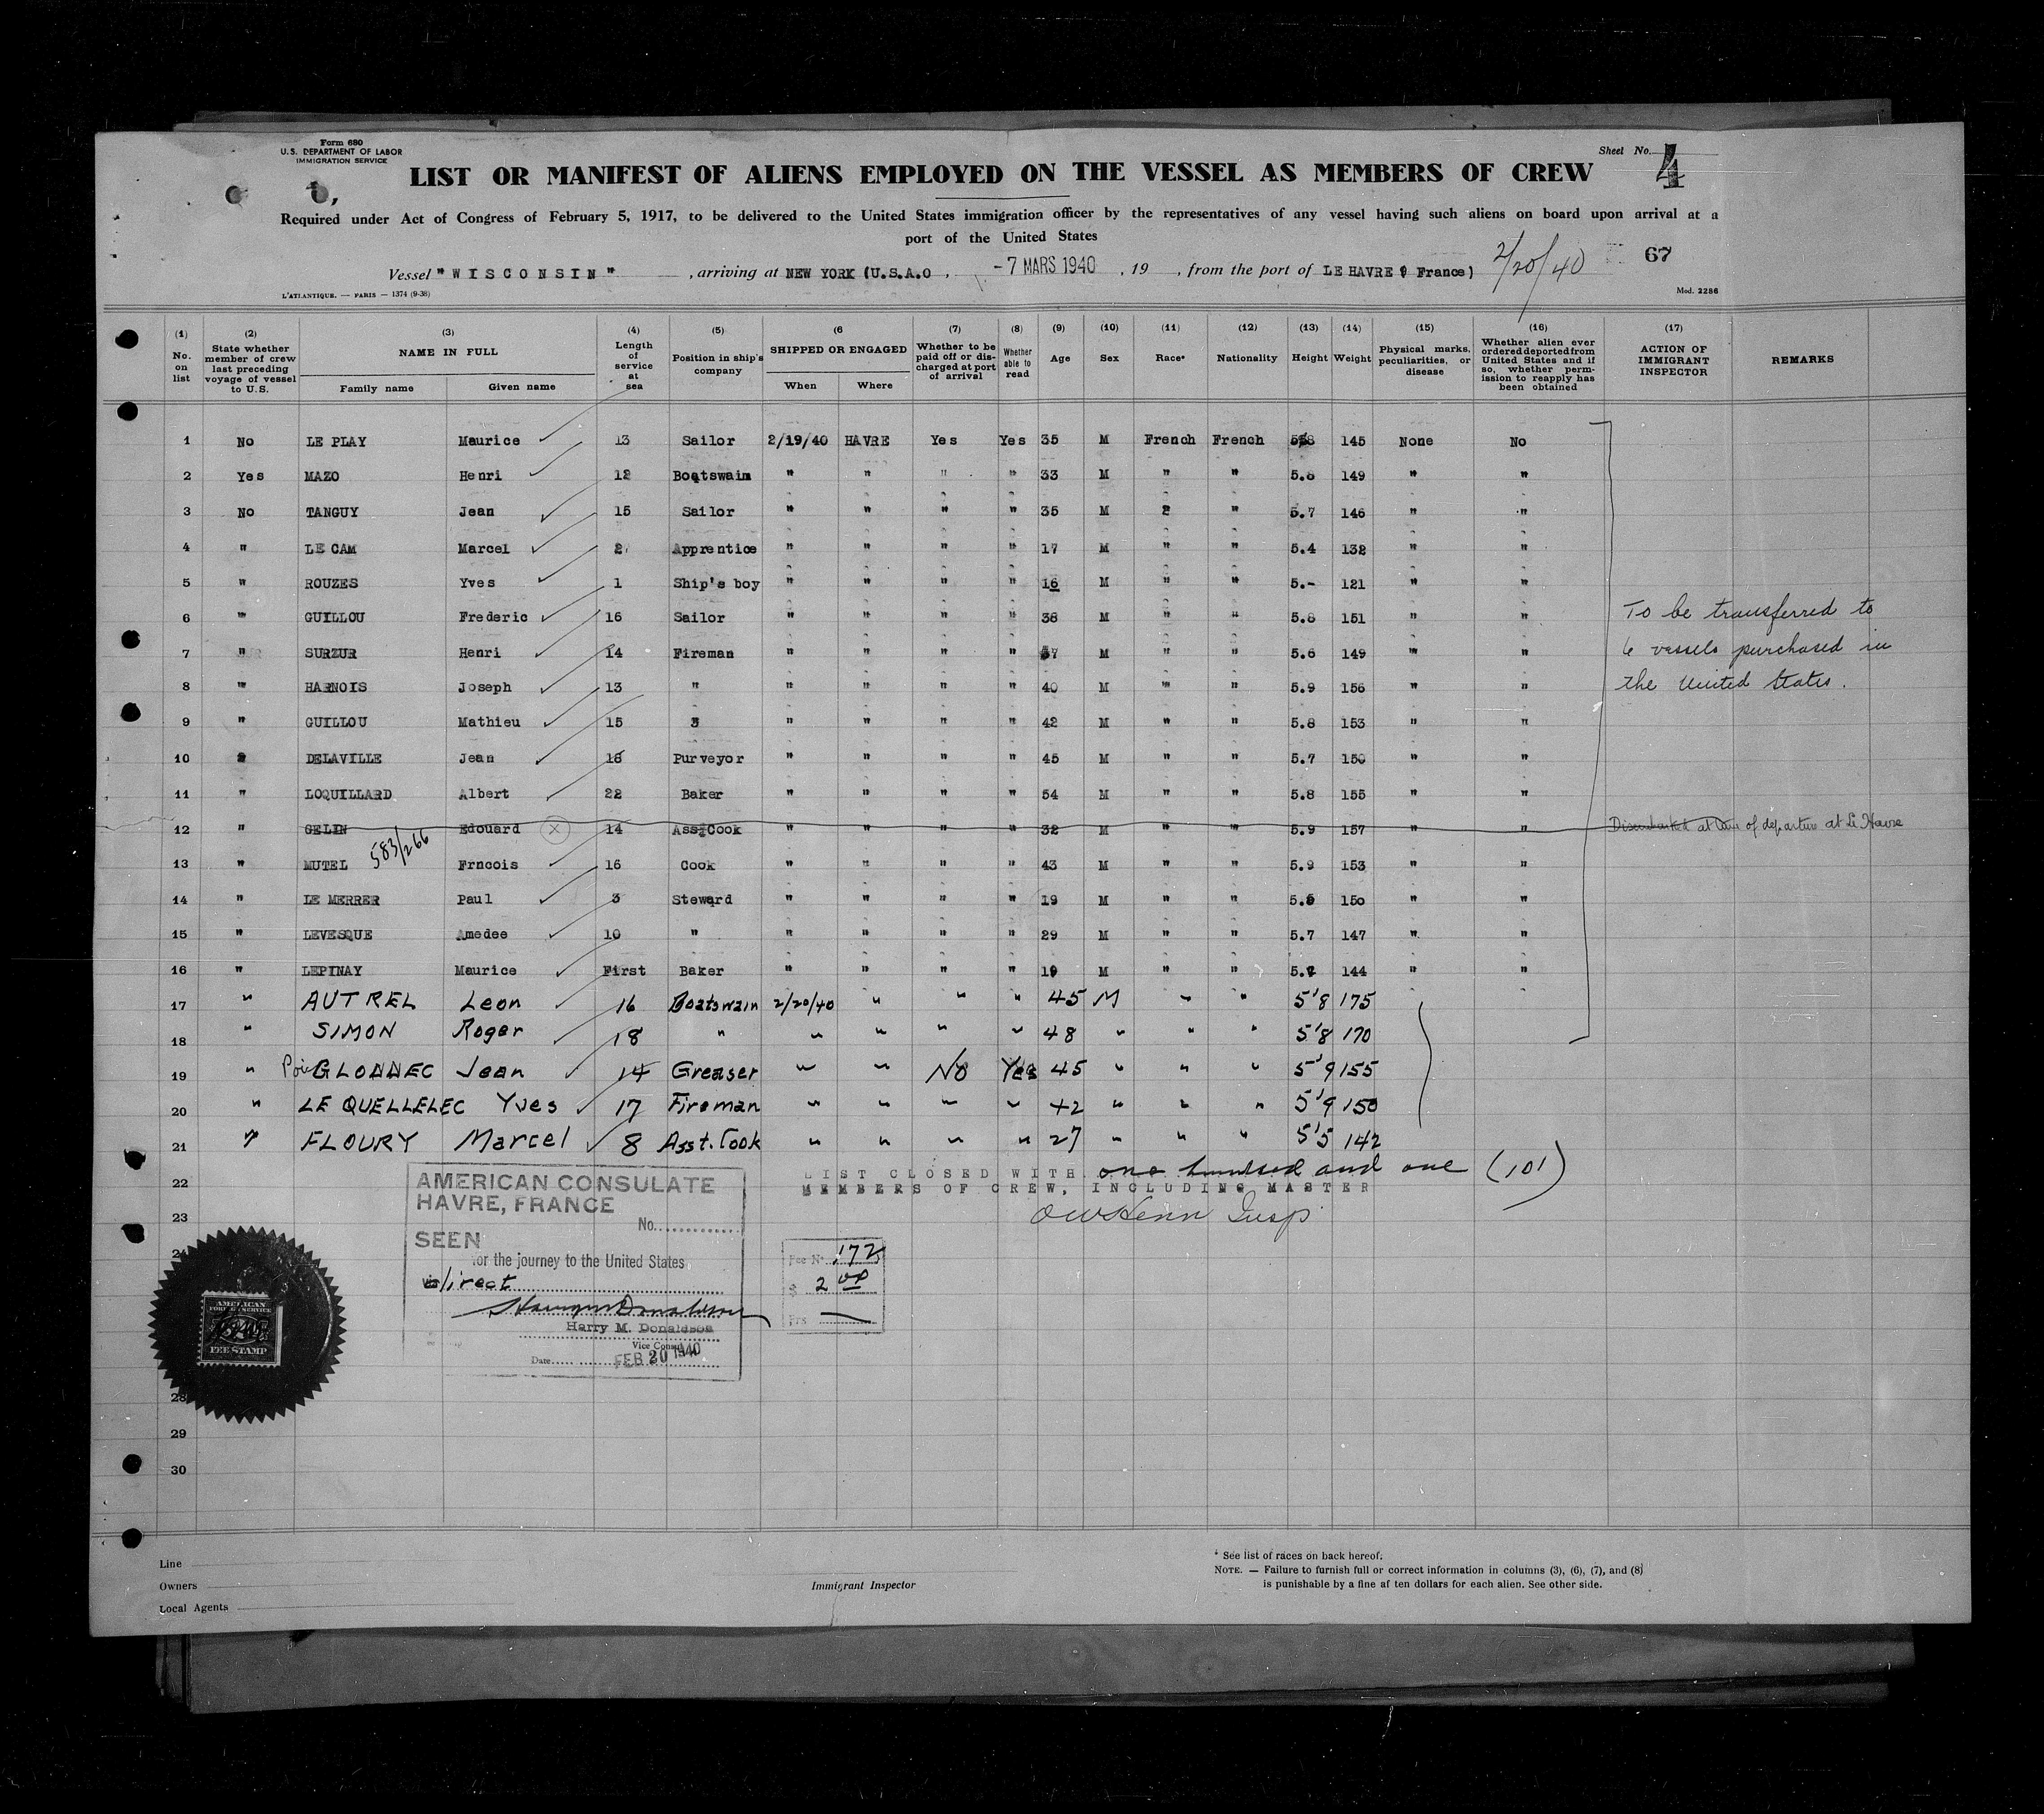 Form 680
U.S. DEPARTMENT OF LABOR
IMMIGRATION SERVICE
Sheet No. 4
LIST OR MANIFEST OF ALIENS EMPLOYED ON THE VESSEL AS MEMBERS OF CREW
Required under Act of Congress of February 5, 1917, to be delivered to the United States immigration officer by the representatives of any vessel having such aliens on board upon arrival at a
port of the United States
2/20/40 67
Vessel "WISCONSIN" , arriving at NEW YORK (U.S.A.O , -7 MARS 1940 , 19 , from the port of LE HAVRE ( France)
L'ATLANTIQUE. — PARIS — 1374 (9-38) Mod. 2286
(1) No. on list
(2) State whether member of crew last preceding voyage of vessel to U.S.
(3) NAME IN FULL Family name Given name
(4) Length of service at sea
(5) Position in ship's company
(6 SHIPPED OR ENGAGED When Where
(7) Whether to be paid off or discharged at port of arrival
(8) Whether able to read
(9) Age
(10) Sex
(11) Race*
(12) Nationality
(13) Height
(14) Weight
(15) Physical marks, peculiarities, or disease
(16) Whether alien ever ordered deported from United States and if so, whether permission to reapply has been obtained
(17) ACTION OF IMMIGRANT INSPECTOR
REMARKS
1 No LE PLAY Maurice 13 Sailor 2/19/40 HAVRE Yes Yes 35 M French French 145 None No
2 Yes MAZO Henri 12 Boatswain " " " " 33 M " " 5.6 149 " "
3 No TANGUY Jean 15 Sailor " " " " 35 M 2 " 5.7 146 " "
4 " LE CAM Marcel 2 Apprentice " " " " 17 M " " 5.4 132 " "
5 " ROUZES Yves 1 Ship's boy " " " " 16 M " " 5.- 121 " "
6 " GUILLOU Frederic 16 Sailor " " " " 38 M " " 5.8 151 " "
7 " SURZUR Henri 14 Fireman " " " " M " " 5.6 149 " "
8 " HARNOIS Joseph 13 " " " " " 40 M " " 5.9 156 " "
To be transferred to
6 vessels purchased in
the United States.
9 " GUILLOU Mathieu 15 3 " " " " 42 M " " 5.8 153 " "
10 DELAVILLE Jean 18 Purveyor " " " " 45 M " " 5.7 150 " "
11 " LOQUILLARD Albert 22 Baker " " " " 54 M " " 5.8 155 " "
12 " GELIN Edouard 14 Asst Cook " " " " 32 M " " 5.9 157 " " Disembarked at time of departure at Le Havre
583/266
13 " MUTEL Frncois 16 Cook " " " " 43 M " " 5.9 153 " "
14 " LE MERRER Paul 3 Steward " " " " 19 M " " 5.5 150 " "
15 " LEVESQUE Amedee 10 " " " " " 29 M " " 5.7 147 " "
16 " LEPINAY Maurice First Baker " " " " 19 M " " 5.2 144 " "
17 " AUTREL Leon 16 Boatswain 2/20/40 " " " 45 M " " 5'8 175
18 " SIMON Roger 18 " " " " " 48 " " " 5'8 170
19 " GLONNEC Jean 14 Greaser " " No Yes 45 " " " 5'9 155
20 " LE QUELLELEC Yves 17 Fireman " " " " 42 " " " 5'9 150
21 " FLOURY Marcel 8 Asst. Cook " " " " 27 " " " 5'5 142
22 LIST CLOSED WITH one hundred and one (101)
MEMBERS OF CREW, INCLUDING MASTER
23
24
28
29
30
AMERICAN CONSULATE
HAVRE, FRANCE
No.
SEEN
for the journey to the United States
via direct
Harry M. Donaldson
Vice Consul
Date FEB 20 1940
Fee No 172
$ 2 00
Frs —
AMERICAN
FOREIGN SERVICE
FEE STAMP
Line
Owners
Local Agents
Immigrant Inspector
* See list of races on back hereof.
NOTE. — Failure to furnish full or correct information in columns (3), (6), (7), and (8)
is punishable by a fine af ten dollars for each alien. See other side.